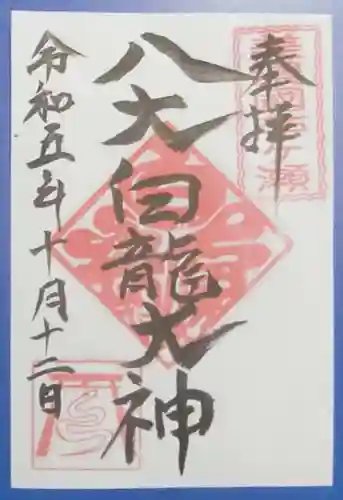 奉拝
八大白龍大神
令和五年十月十二日